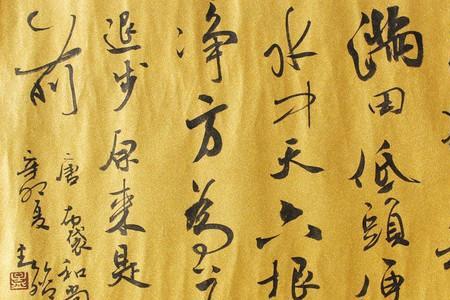 滿田低頭便
水中天六根
净方為
退步原來是
前
唐布袋和尚
辛卯夏